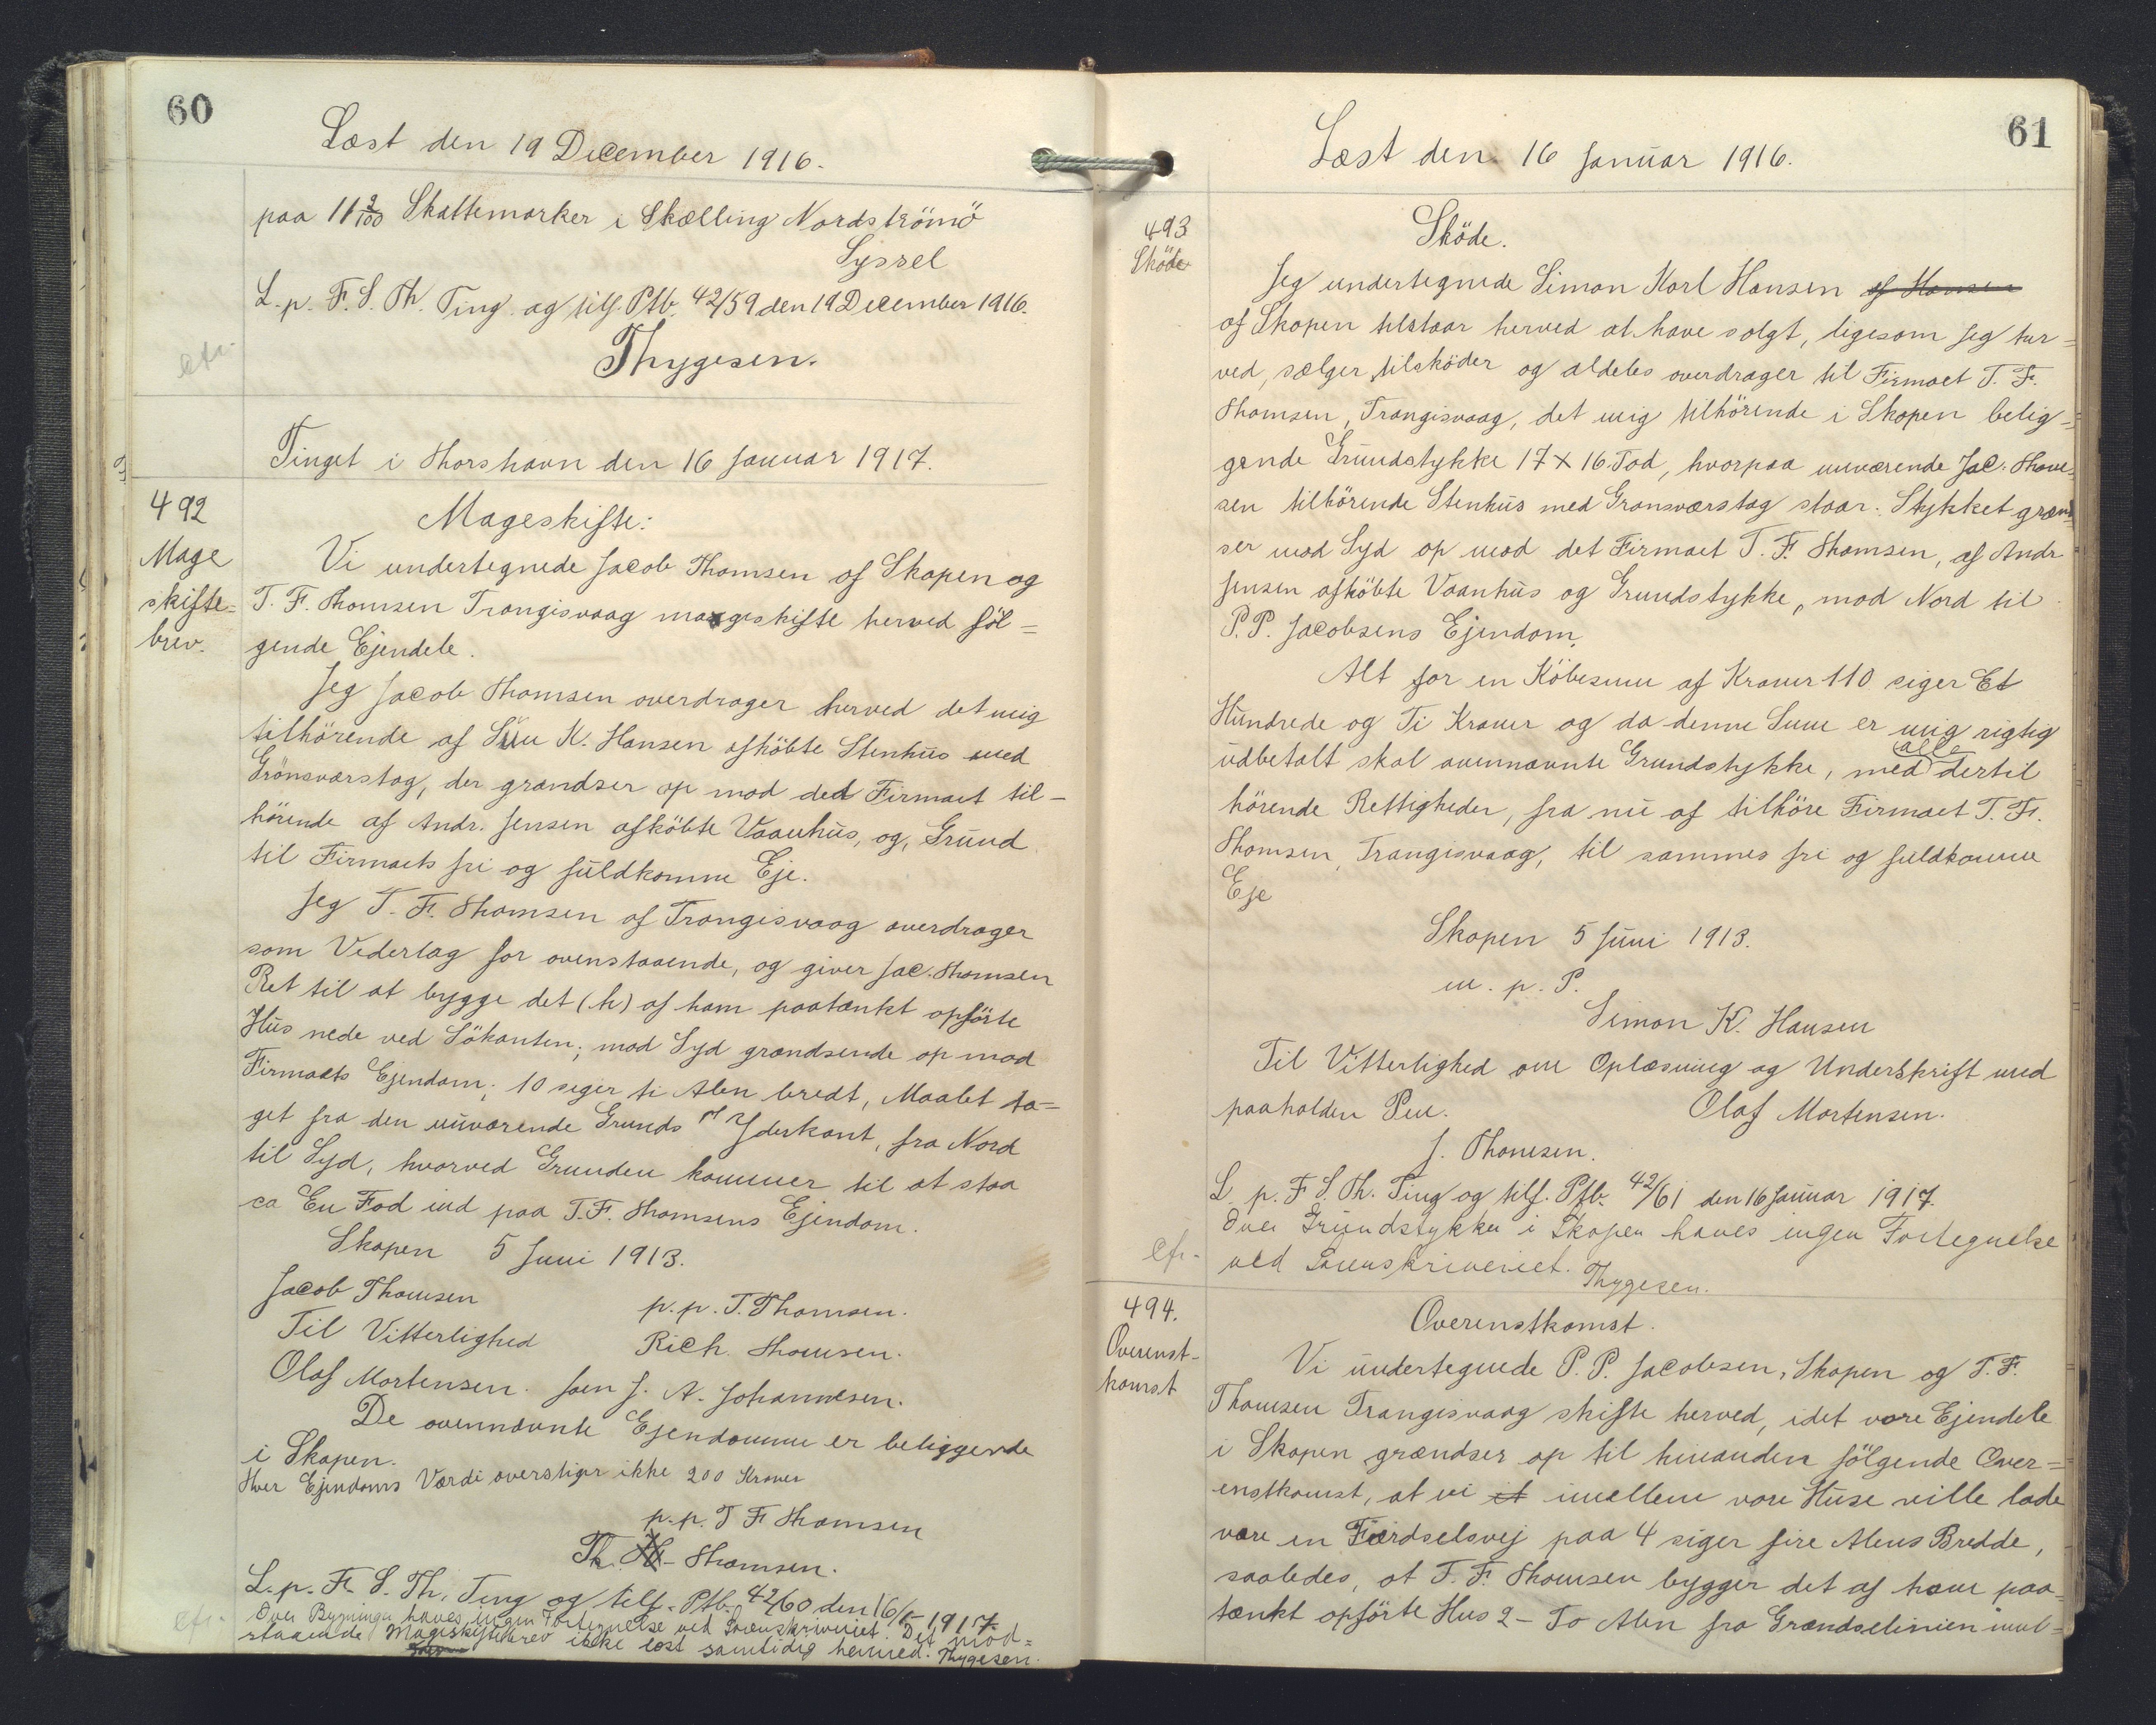 60
Læst den 19 December 1916.
paa 11 2/100 Skattemarker i Skælling Nordströmö
Syssel
L. p. F. S. Th. Ting og tilf. Ptb. 42/59 den 19 December 1916.
Thygesen.
efr.
Tinget i Thorshavn den 16 Januar 1917.
492
Mage
skifte-
brev.
Mageskifte:
Vi undertegnede Jacob Thomsen af Skopen og
T. F. Thomsen Trangisvaag mageskifte herved föl=
gende Ejendele.
Jeg Jacob Thomsen overdrager herved det mig
tilhörende af Sim K. Hansen afköbte Stenhus med
Grönsværstag, der grændser op mod det Firmaet til-
hörende af Andr. Jensen afköbte Vaanhus, og, Grund
til Firmaets fri og fuldkomne Eje.
Jeg T. F. Thomsen af Trangisvaag overdrager
som Vederlag for ovenstaaende, og giver Jac. Thomsen
Ret til at bygge det (h) af ham paatænkt opförte
Hus nede ved Sökanten; mod Syd grændsende op mod
Firmaets Ejendom; 10 siger ti Alen bredt, Maalet ta=
get fra den nuværende Grunds Yderkant, fra Nord
til Syd, hvorved Grunden kommer til at staa
ca En Fod ind paa T. F. Thomsens Ejendom.
Skopen 5 Juni 1913.
Jacob Thomsen p. p. T. Thomsen.
Til Vitterlighed Rich. Thomsen.
Olaf Mortensen. Joen J. A. Johannesen.
De ovennævnte Ejendomme er beliggende
i Skopen.
Hver Ejendoms Værdi overstiger ikke 200 Kroner
p. p. T F Thomsen
Th. Thomsen.
L. p. F. S. Th. Ting og tilf. Ptb. 42/60 den 16/1 1917.
efr.
Over Bygninger haves ingen Fortegnelse ved Sorenskriveriet. Det mod=
staaende Mageskiftebrev ikke læst samtidig hermed. Thygesen.
61
Læst den 16 Januar 1916.
493
Sköde
Sköde.
Jeg undertegnede Simon Karl Hansen af Hansen
af Skopen tilstaar herved at have solgt, ligesom jeg her=
ved, sælger, tilsköder og aldeles overdrager til Firmaet T. F.
Thomsen, Trangisvaag, det mig tilhörende i Skopen belig=
gende Grundstykke 17 x 16. Fod, hvorpaa nuværende Jac. Thom=
sen tilhörende Stenhus med Grønsværstag staar. Stykket grænd=
ser mod Syd op mod det Firmaet T. F. Thomsen, af Andr
Jensen afköbte Vaanhus og Grundstykke, mod Nord til
P. P. Jacobsens Ejendom.
Alt for en Köbesum af Kroner 110 siger Et
Hundrede og Ti Kroner og da denne Sum er mig rigtig
udbetalt skal ovennævnte Grundstykke, med alle dertil
hörende Rettigheder, fra nu af tilhöre Firmaet T. F.
Thomsen, Trangisvaag, til sammes fri og fuldkomne
Eje
Skopen 5 Juni 1913.
m. p. P.
Simon K. Hansen
Til Vitterlighed om Oplæsning og Underskrift med
paaholden Pen. Olaf Mortensen.
J. Thomsen.
L. p. F S. Th. Ting og tilf. Ptb. 42/61 den 16 Januar 1917.
Over Grundstykker i Skopen haves ingen Fortegnelse
efr.
ved Sorenskriveriet. Thygesen.
494.
Overenst-
komst
Overenstkomst.
Vi undertegnede P. P. Jacobsen, Skopen og T. F.
Thomsen Trangisvaag skifte herved, idet vore Ejendele
i Skopen grændser op til hinanden fölgende Over=
enstkomst, at vi et imellem vore Huse ville lade
være en Færdselsvej paa 4 siger fire Alens Bredde,
saaledes, at T. F. Thomsen bygger det af ham paa-
tænkt opförte Hus 2 - To Alen fra Grændselinien mel=